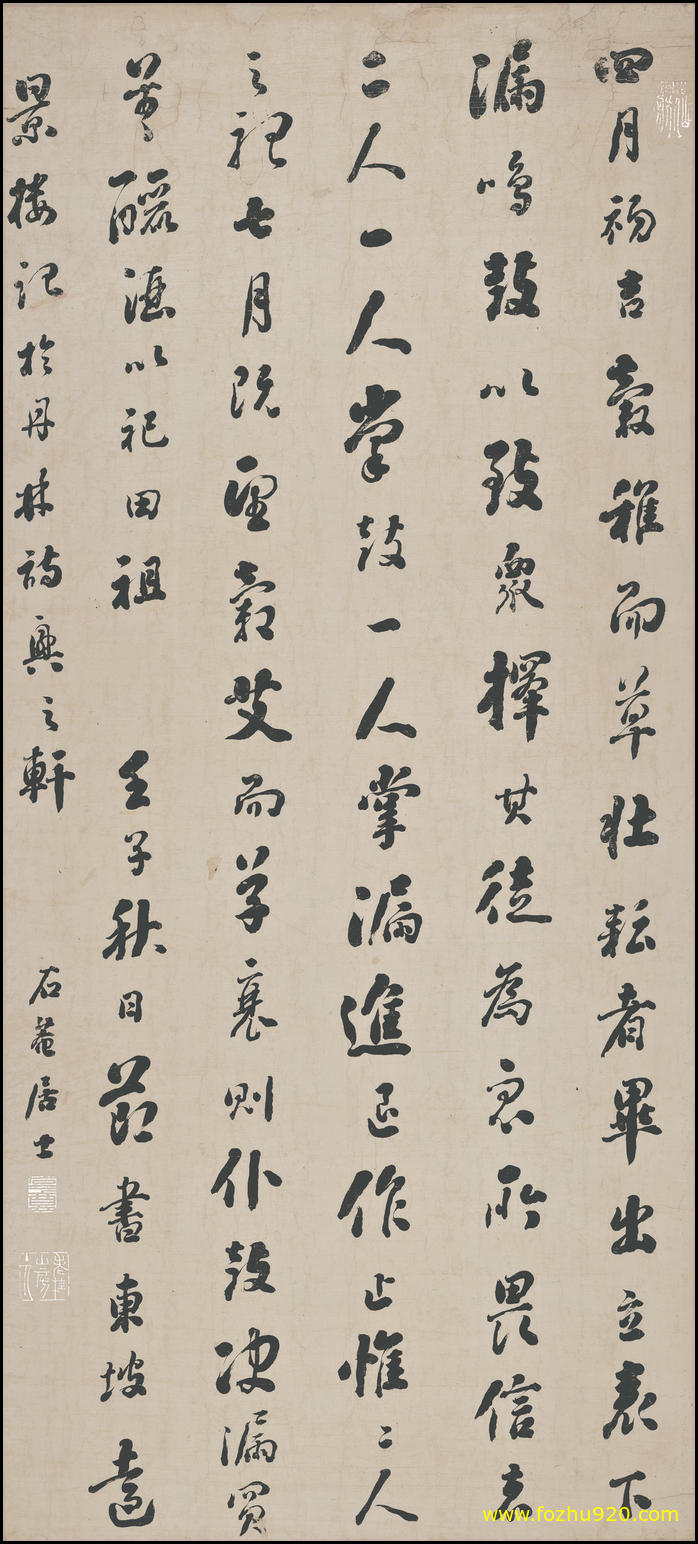 四月初吉穀稚而草壯耘者畢出立表下
漏鳴鼓以致衆擇其徒為衆所畏信者
二人一人掌鼓一人掌漏進退作止惟二人
之聽七月既望穀艾而草衰則仆鼓決漏買
羊釃酒以祀田祖 壬子秋日節書東坡遠
景樓記於丹林詩興之軒 石菴居士
www.fozhu920.com